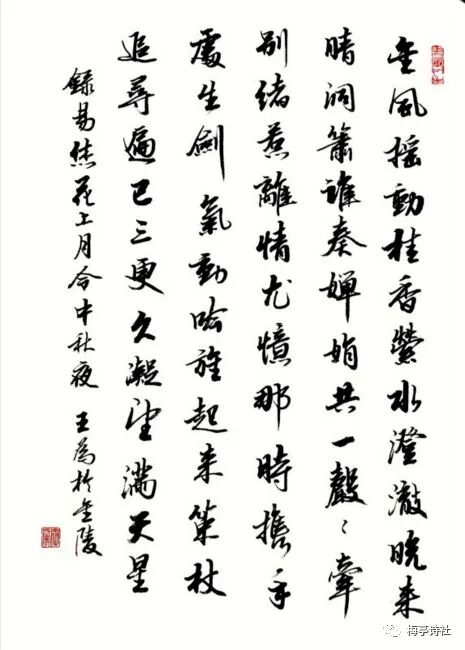 金風摇動桂香縈水澄澈晚来
晴洞簫誰奏嬋娟共一聲〻牽
别绪惹離情尤憶那時攜手
處生劍氣動吟旌起来策杖
追尋遍已三更久凝望滿天星
錄易花上月令中秋夜 王為於金陵
梅亭诗社